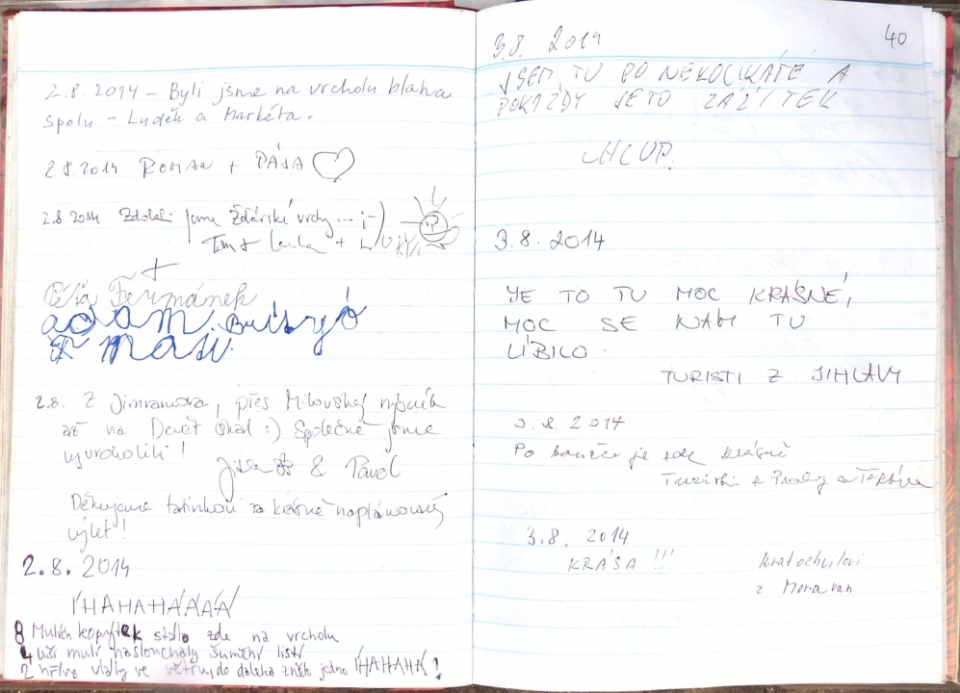 2.8.2014 – Byli jsme na vrcholu blaha
Spolu – Luděk a Markéta.
2.8.2014 ROMAN + PÁJA
2.8.2014 Zdolali jsme Žďárské vrchy... ;-)
Tom + Lenka +
Péťa Feřmánek
adam
masi
2.8. Z Jimramova, přes Milovský rybník
až na Devět skal :) Společně jsme
vyvrcholili!
Jitka & Pavel
Děkujeme tatínkovi za krásně naplánovaný
výlet!
2.8.2014
IHAHAHÁÁÁÁ
8 Mulích kopýtek stálo zde na vrcholu
4 uši mulí naslouchaly šumění listí
2 hřívy vlály ve větru, do daleka znělo jedno IHAHAHÁ!
40
3.8. 2014
JSEM TU PO NĚKOLIKÁTÉ A
POKAŽDÝ JETO ZÁŽITEK
3.8.2014
JE TO TU MOC KRÁSNÉ,
MOC SE NÁM TU
LÍBILO.
TURISTI Z JIHLAVY
3.8.2014
Po je zde krásně
Turisti z Prahy a
3.8. 2014
KRÁSA !!!
Kratochvílovi
z Moravan